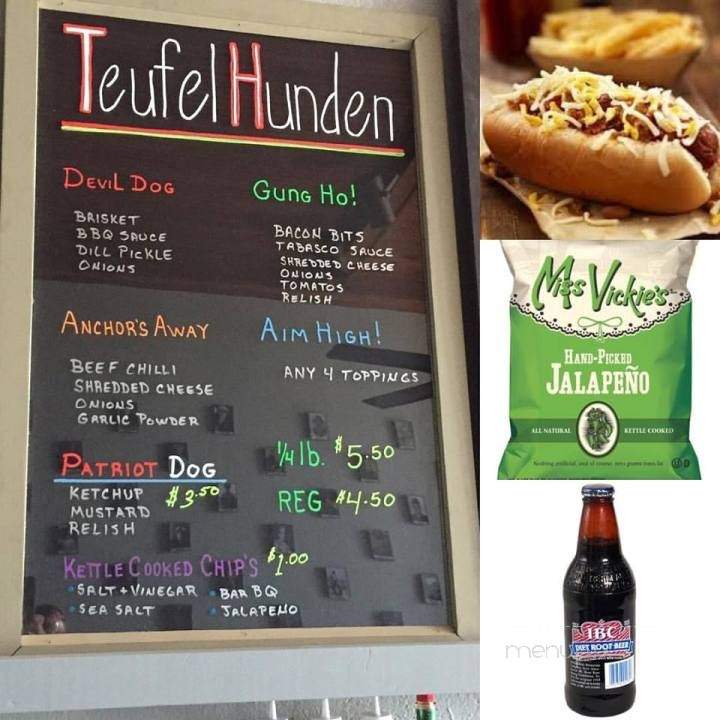 Teufel Hunden
DEVIL DOG
BRISKET
BBQ SAUCE
DILL PICKLE
ONIONS
GUNG HO!
BACON BITS
TABASCO SAUCE
SHREDDED CHEESE
ONIONS
TOMATOS
RELISH
ANCHOR'S AWAY
BEEF CHILLI
SHREDDED CHEESE
ONIONS
GARLIC POWDER
AIM HIGH!
ANY 4 TOPPINGS
PATRIOT DOG
KETCHUP $3.50
MUSTARD
RELISH
1/4 lb. $5.50
REG $4.50
KETTLE COOKED CHIP'S $1.00
SALT + VINEGAR
SEA SALT
BAR BQ
JALAPENO
Miss Vickie's
HAND-PICKED
JALAPEÑO
ALL NATURAL
KETTLE COOKED
IBC
DIET ROOT BEER
menu